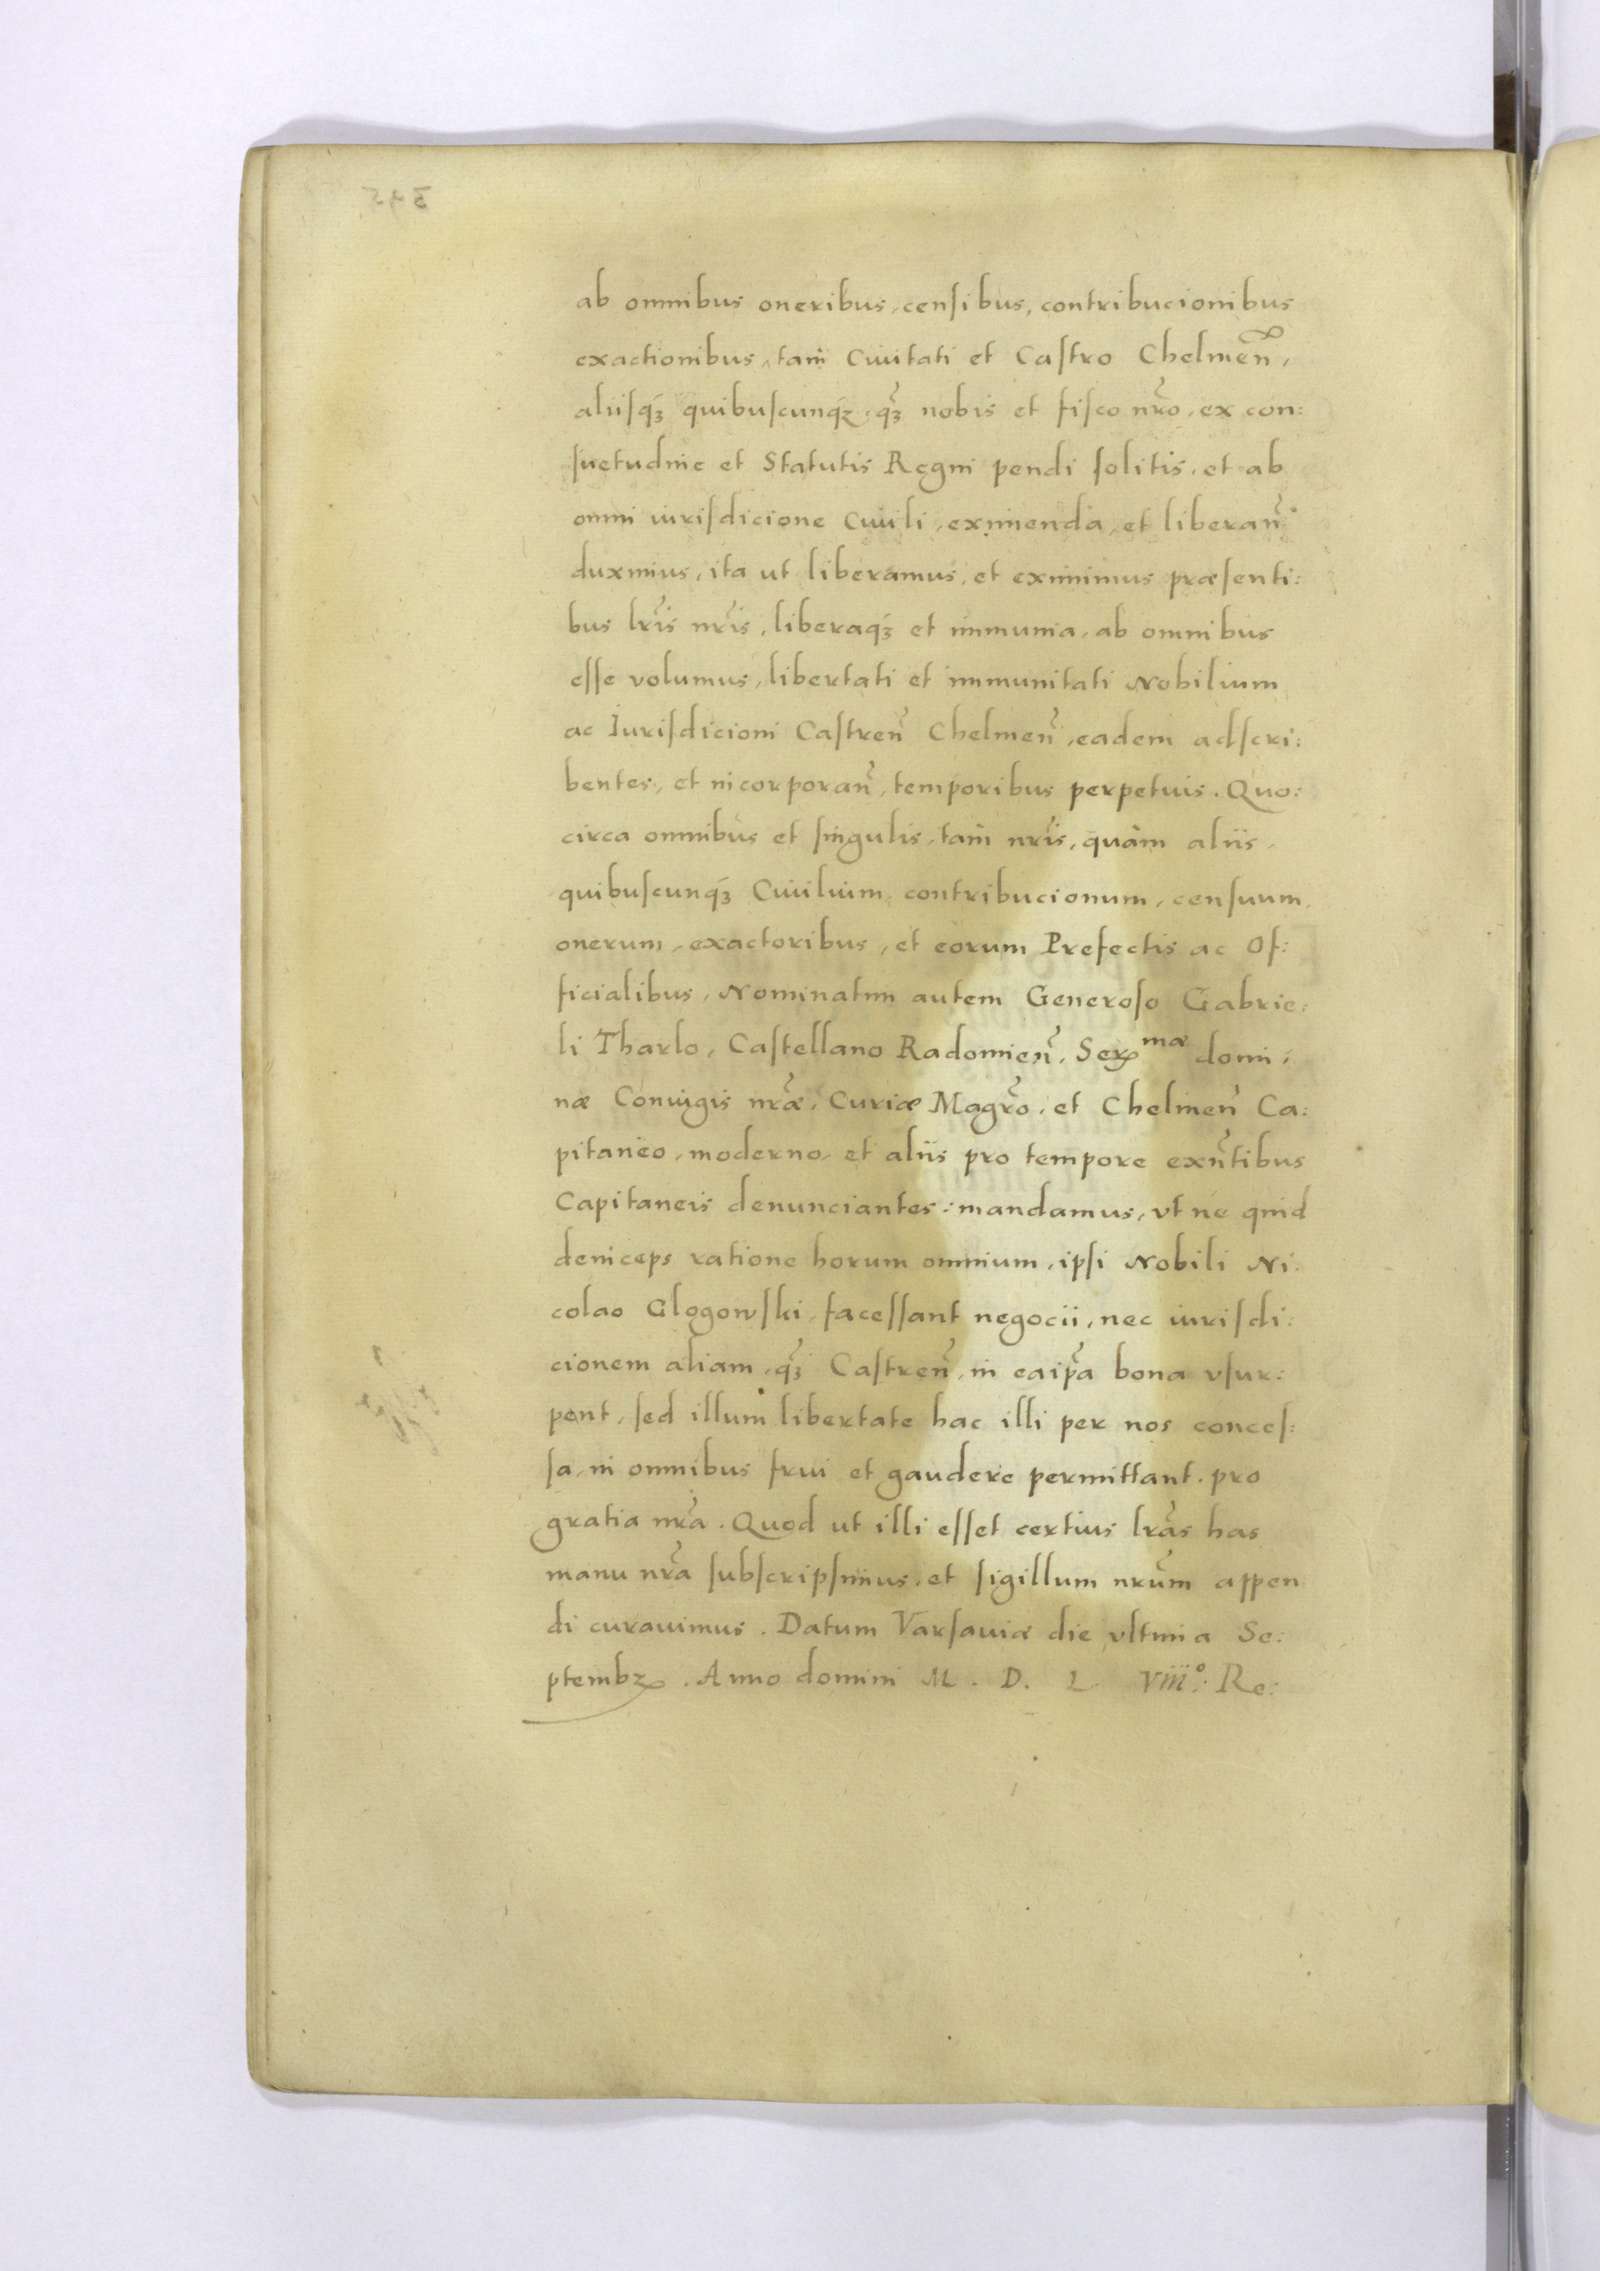 ab omnibus oneribus, censibus, contribucionibus
exactionibus, tam Ciuitati et Castro Chelmen̄,
aliisqꝫ quibuscunqꝫ, qꝫ nobis et fisco nr̄o, ex con:
suetudine et Statutis Regni pendi solitis, et ab
omni iurisdicione Ciuili, eximenda, et liberan̄
duximus, ita ut liberamus, et eximimus præsenti:
bus lr̄is nr̄is, liberaqꝫ et immunia, ab omnibus
esse volumus, libertati et immunitati Nobilium
ac Iurisdicioni Castren̄ Chelmen̄, eadem adscri:
bentes, et incorporan̄, temporibus perpetuis. Quo:
circa omnibus et singulis, tam nr̄is, quàm aliis,
quibuscunqꝫ Ciuilium contribucionum, censuum,
onerum, exactoribus, et eorum Prefectis ac Of:
ficialibus, Nominatim autem Generoso Gabrie:
li Tharlo, Castellano Radomien̄, Ser^mae domi:
næ Coniugis nr̄æ, Curiæ Magr̄o, et Chelmen̄ Ca:
pitaneo, moderno, et aliis pro tempore exn̄tibus
Capitaneis denunciantes: mandamus, vt ne quid
deinceps ratione horum omnium, ipsi Nobili Ni:
colao Glogowski, facessant negocii, nec iurisdi:
cionem aliam, qꝫ Castren̄, in eaip̄a bona vsur:
pent, sed illum libertate hac illi per nos conces:
sa, in omnibus frui et gaudere permittant. pro
gratia nr̄a. Quod ut illi esset certius lr̄as has
manu nr̄a subscripsimus, et sigillum nr̄um appen
di curauimus. Datum Varsauiæ die vltima Se:
ptembꝝ. Anno domini M. D. L VIII°: Re: